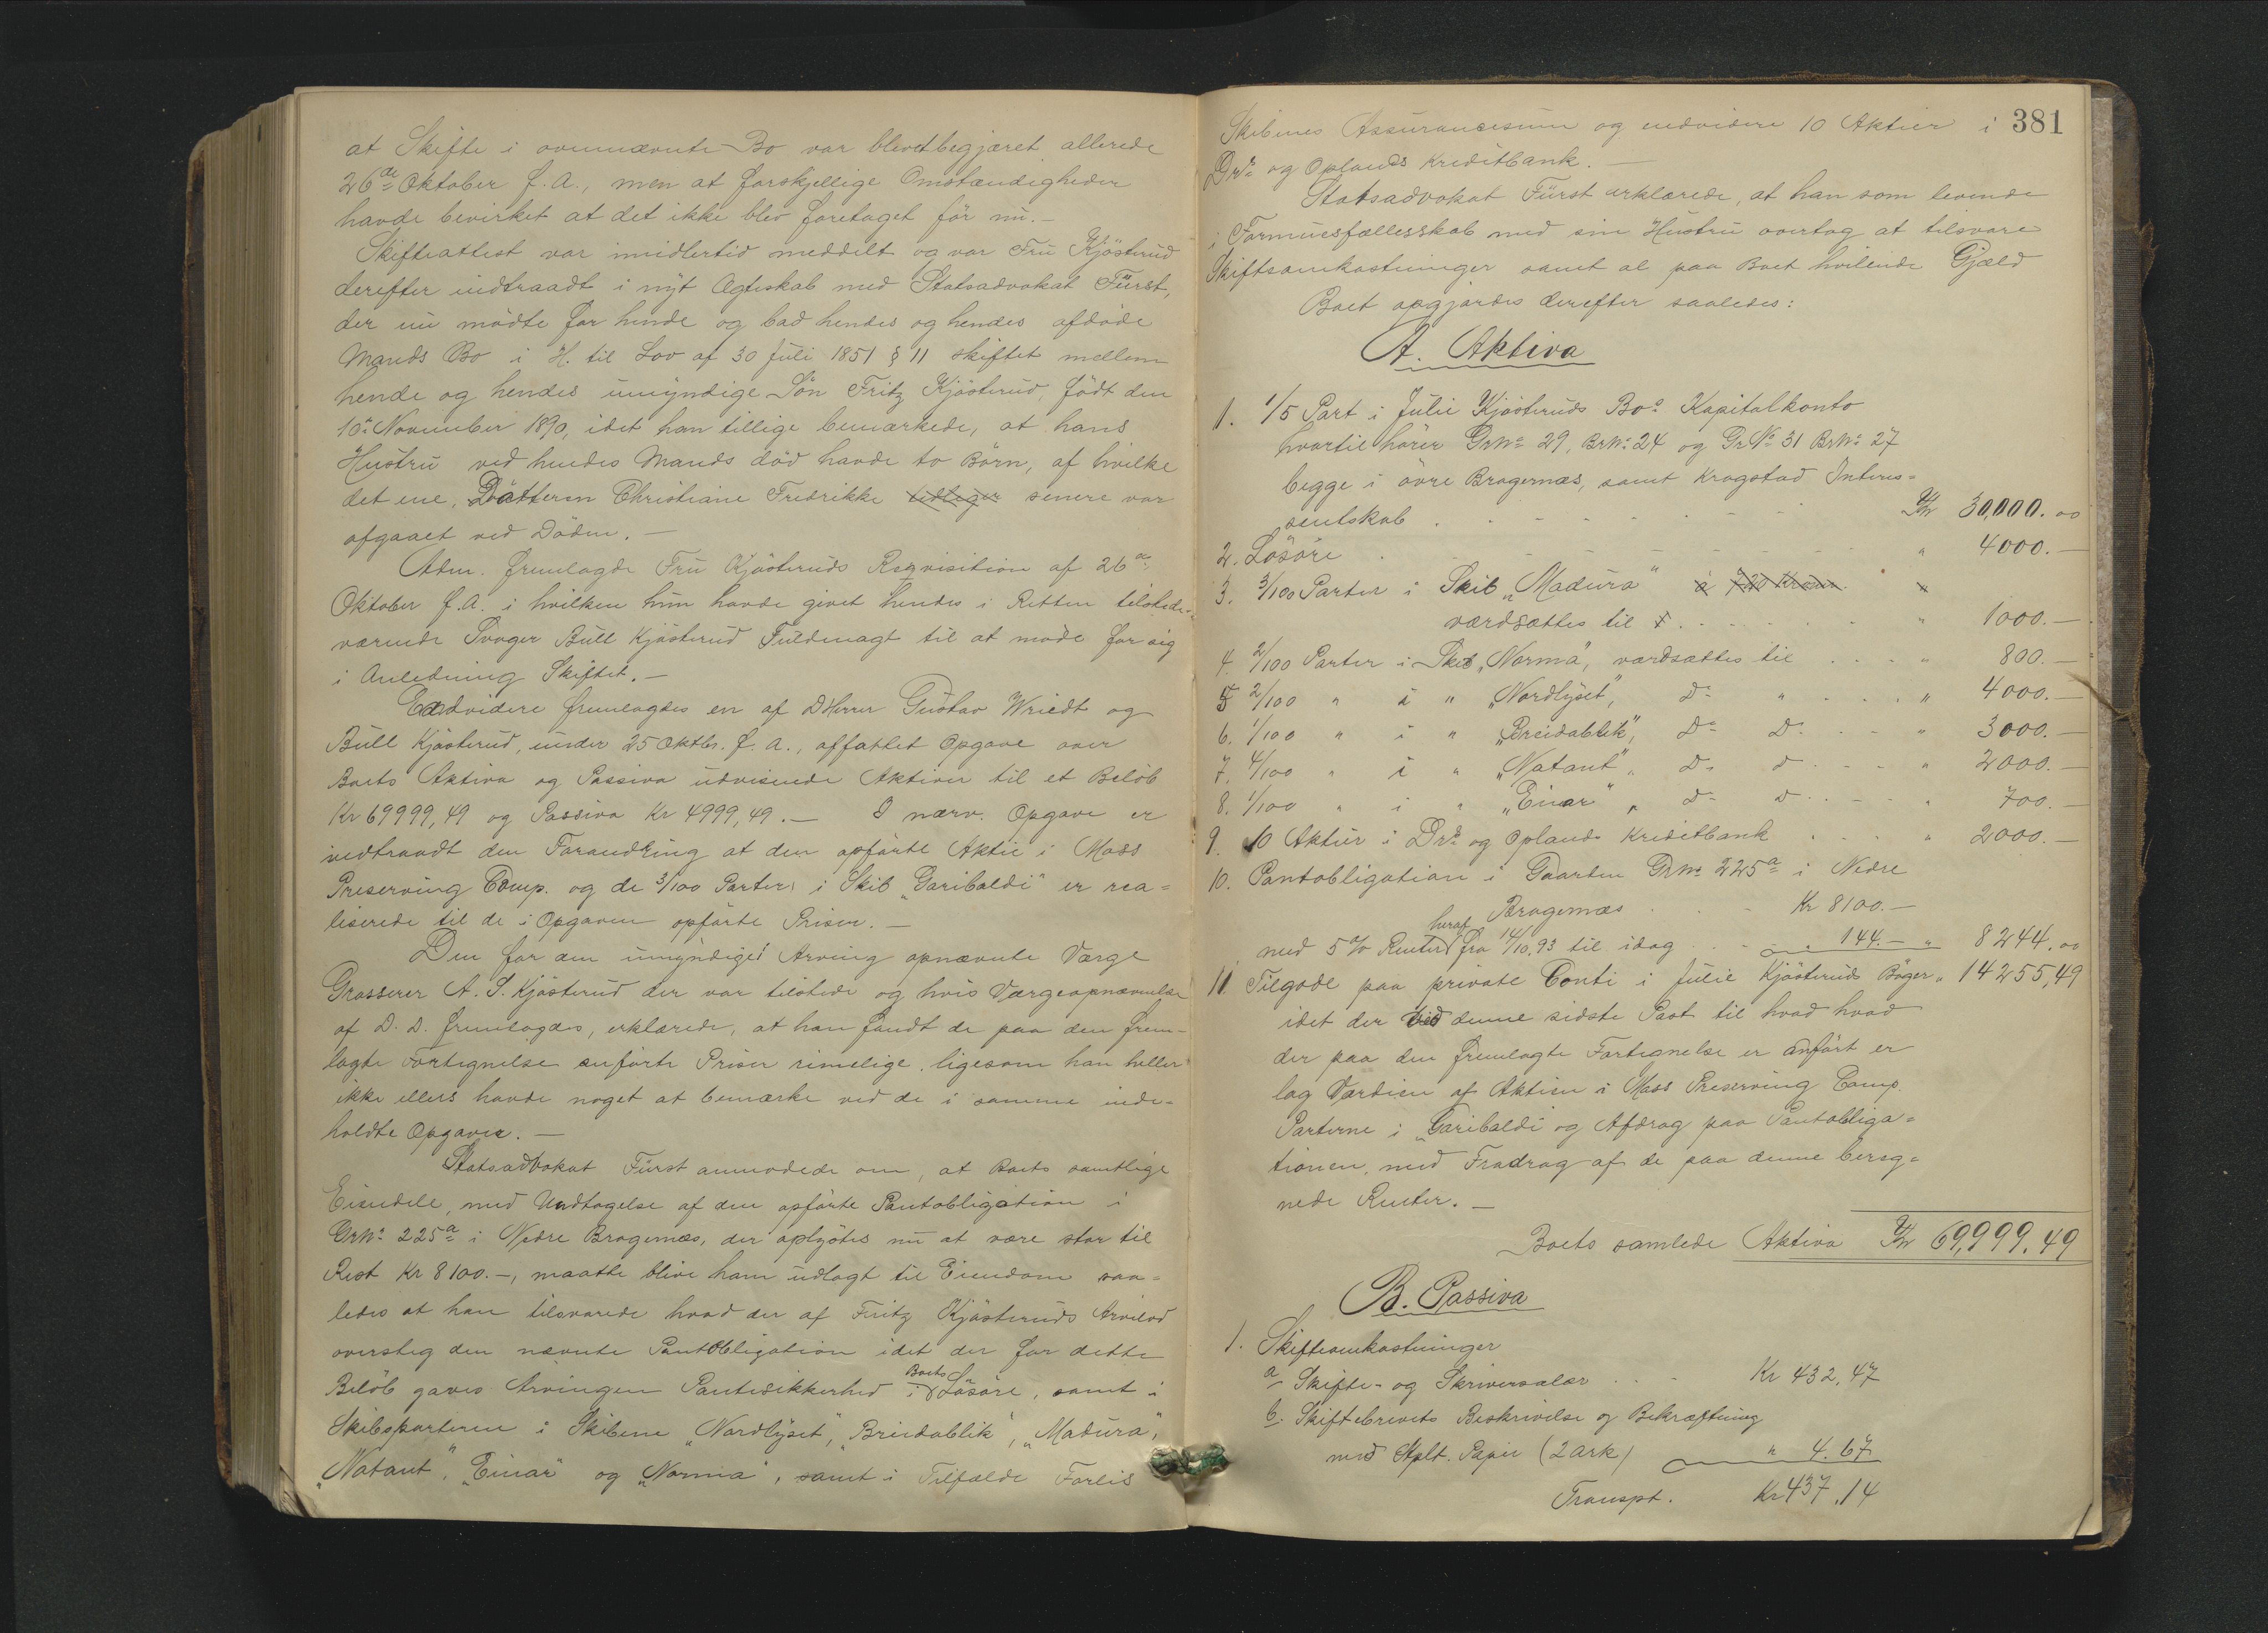 at Skifte i ovennævnte Bo var blevet begjæret allerede
26de Oktober f. A., men at forskjellige Omstændigheder
havde bevirket at det ikke blev foretaget før nu.—
Skifteattest var imidlertid meddelt og var Fru Kjøsterud
derefter indtraadt i nyt Ægteskab med Statsadvokat Fürst,
der nu mødte for hende og bad hendes og hendes afdøde
Mands Bo i H. til Lov af 30 Juli 1851 § 11 skiftet mellem
hende og hendes umyndige Søn Fritz Kjøsterud, født den
10de November 1890, idet han tillige bemærkede, at hans
Hustru ved hendes Mands død havde to Børn, af hvilke
det ene, Datteren Christiane Fredrikke senere var
afgaaet ved Døden.—
Adm. fremlagde Fru Kjøsteruds Reqvisition af 26de
Oktober f. A. i hvilken hun havde givet hendes i Retten tilstede-
værende Svoger Bull Kjøsterud Fuldmagt til at møde for sig
i Anledning Skiftet.—
Endvidere fremlagdes en af DHerrer Gustav Wriedt og
Bull Kjøsterud, under 25 Oktbr. f. A., affattet Opgave over
Boets Aktiva og Passiva udvisende Aktiva til et Beløb
Kr 69999,49 og Passiva Kr 4999,49.— I nærv. Opgave er
indtraadt den Forandring at den opførte Aktie i Moss
Preserving Comp. og de 3/100 Parter i Skib „Garibaldi" er rea=
liserede til de i Opgaven opførte Priser.—
Den for den umyndige Arving opnævnte Værge
Grosserer A. S. Kjøsterud der var tilstede og hvis Værgeopnævnelse
af D. D. fremlagdes, erklærede, at han fandt de paa den frem-
lagte Fortegnelse anførte Priser rimelige, ligesom han heller
ikke ellers havde noget at bemærke ved de i samme inde=
holdte Opgaver.—
Statsadvokat Fürst anmodede om, at Boets samtlige
Eiendele, med Undtagelse af den opførte Pantobligation i
GrNo 225a i Nedre Bragernæs, der oplystes nu at være stor til
Rest Kr 8100.—, maatte blive ham udlagt til Eiendom saa=
ledes at han tilsvarede hvad der af Fritz Kjøsteruds Arvelod
oversteg den nævnte Pantobligation idet der for dette
Beløb gaves Arvingen Pantesikkerhed i Boets Løsøre, samt i
Skibsparterne i Skibene „Nordlyset", „Breidablik", „Madura",
„Natant", „Einar" og „Norma", samt i Tilfælde Forlis
381
Skibenes Assurancesum og endvidere 10 Aktier i
Drs og Oplands Kreditbank.—
Statsadvokat Fürst erklærede, at han som levende
i Formuesfællesskab med sin Hustru overtog at tilsvare
Skiftsomkostninger samt al paa Boet hvilende Gjæld
Boet opgjordes derefter saaledes:
A. Aktiva
1. 1/5 Part i Julie Kjøsteruds Bos Kapitalkonto
hvortil hører GrNo 29, BrNo 24 og GrNo 31 BrNo 27
begge i øvre Bragernæs, samt Krogstad Interes=
sentskab . . . . Kr 30,000.00
2. Løsøre . . . . " 4000.—
3. 3/100 Parter i Skib „Madura" à 720 Kroner "
værdsættes til . . . . " 1000.—
4. 2/100 Parter i Skib „Norma", værdsættes til . . . " 800.—
5 2/100 " i " „Nordlyset", Do " . . . " 4000.—
6. 1/100 " i " „Breidablik", Do Do . . . " 3000.—
7. 4/100 " i " „Natant", Do do . . . " 2000.—
8. 1/100 " i " „Einar", do do . . . " 700.—
9. 10 Aktier i Drs og Oplands Kreditbank . . . " 2000.—
10. Pantobligation i Gaarden GrNo 225a i Nedre
Bragernæs . . . Kr 8100.—
med 5% Renter heraf fra 14/10.93 til idag . . . " 144.— " 8244.00
11 Tilgode paa private Conti i Julie Kjøsteruds Bøger " 14255,49
idet der ved denne sidste Post til hvad hvad
der paa den fremlagte Fortegnelse er anført er
lag Værdien af Aktien i Moss Preserving Comp.
Parterne i „Garibaldi og Afdrag paa Pantobliga=
tionen, med Fradrag af de paa denne bereg=
nede Renter.—
Boets samlede Aktiva Kr 69,999.49
B. Passiva
1. Skifteomkostninger
a Skifte- og Skriversalær . . . Kr 432,47
b. Skiftebrevets Beskrivelse og Bekræftning
med Stplt. Papir (2 Ark) " 4.67
Transpt. Kr 437.14